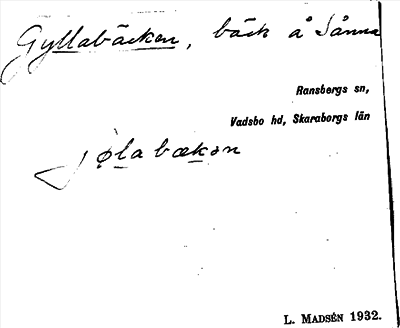 Gyllabäcken, bäck å Sånna
Ransbergs sn,
Vadsbo hd, Skaraborgs län
jølabækən
L. MADSÉN 1932.